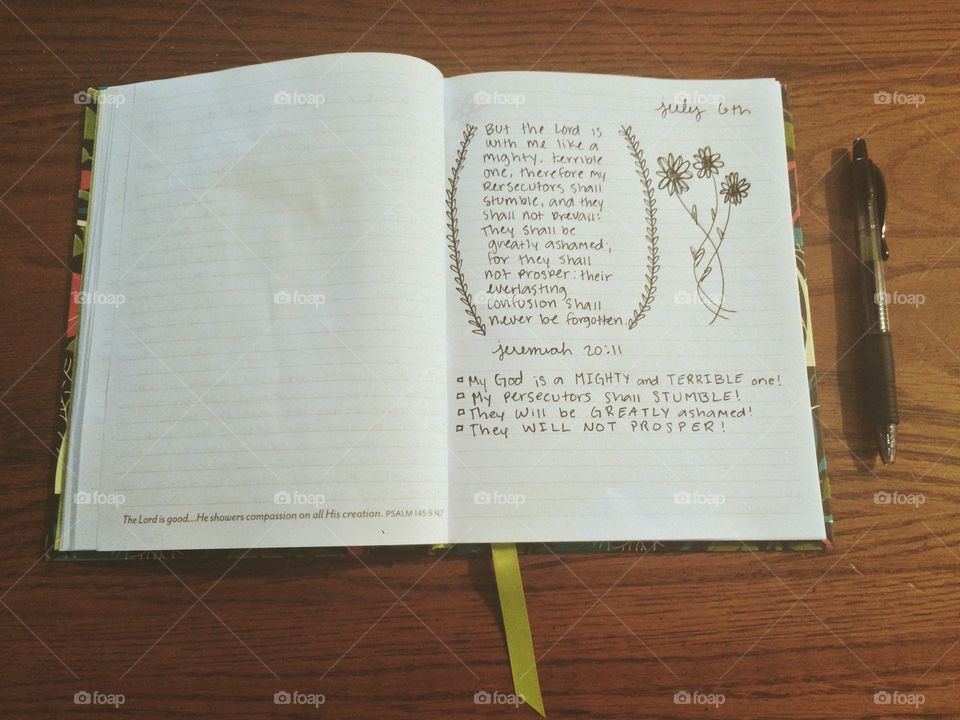 The Lord is good...He showers compassion on all His creation. PSALM 145:9 NLT
july 6th
But the Lord is
with me like a
mighty, terrible
one, therefore my
Persecutors shall
stumble, and they
shall not prevail:
They shall be
greatly ashamed;
for they shall
not prosper: their
everlasting
confusion shall
never be forgotten.
jeremiah 20:11
My God is a MIGHTY and TERRIBLE one!
My persecutors shall STUMBLE!
They will be GREATLY ashamed!
They WILL NOT PROSPER!
foap